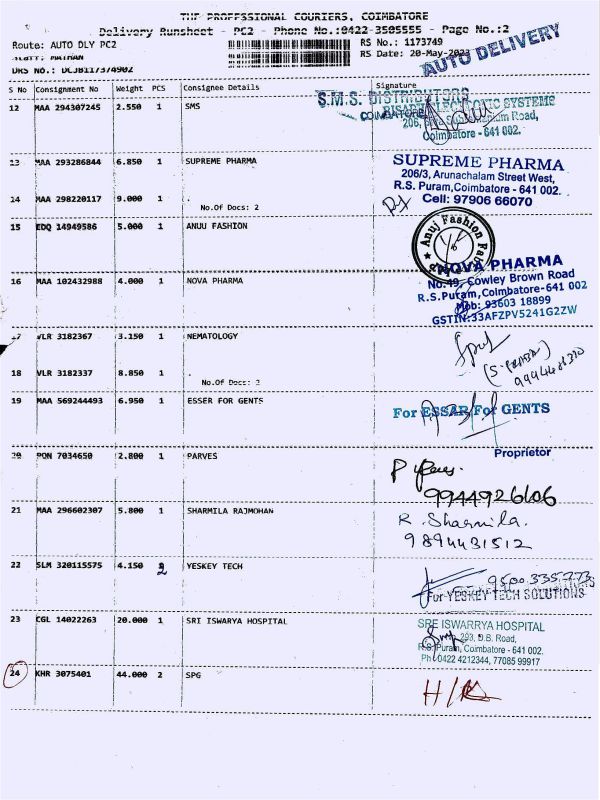 THE PROFESSIONAL COURIERS, COIMBATORE
Delivery Runsheet - PC2 - Phone No.:0422-3505555 - Page No.:2
Route: AUTO DLY PC2
RS No.: 1173749
RS Date: 20-May-2023
AUTO DELIVERY
DRS No.: DCJB117374902
S No Consignment No Weight PCS Consignee Details Signature
12 MAA 294307245 2.550 1 SMS
S.M.S. DISTRIBUTORS
COIMBATORE
Coimbatore - 641 002.
13 MAA 293286844 6.850 1 SUPREME PHARMA
SUPREME PHARMA
206/3, Arunachalam Street West,
R.S. Puram, Coimbatore - 641 002.
Cell: 97906 66070
14 MAA 298220117 9.000 1 .
No.Of Docs: 2
15 EDQ 14949586 5.000 1 ANUU FASHION
Anuj Fashion
16 MAA 102432988 4.000 1 NOVA PHARMA
NOVA PHARMA
No.49, Cowley Brown Road
R.S.Puram, Coimbatore-641 002
Mob: 93603 18899
GSTIN:33AFZPV5241G2ZW
17 VLR 3182367 3.150 1 NEMATOLOGY
18 VLR 3182337 8.850 1 .
No.Of Docs: 2
19 MAA 569244493 6.950 1 ESSER FOR GENTS
For ESSAR For GENTS
Proprietor
20 PON 7034650 2.800 1 PARVES
9944926606
21 MAA 296602307 5.800 1 SHARMILA RAJMOHAN
R. Sharmila.
9894431512
22 SLM 320115575 4.150 2 YESKEY TECH
9500335773
For YESKEY TECH SOLUTIONS
23 CGL 14022263 20.000 1 SRI ISWARYA HOSPITAL
SREE ISWARRYA HOSPITAL
293, D.B. Road,
R.S. Puram, Coimbatore - 641 002.
Ph: 0422 4212344, 77085 99917
24 KHR 3075401 44.000 2 SPG